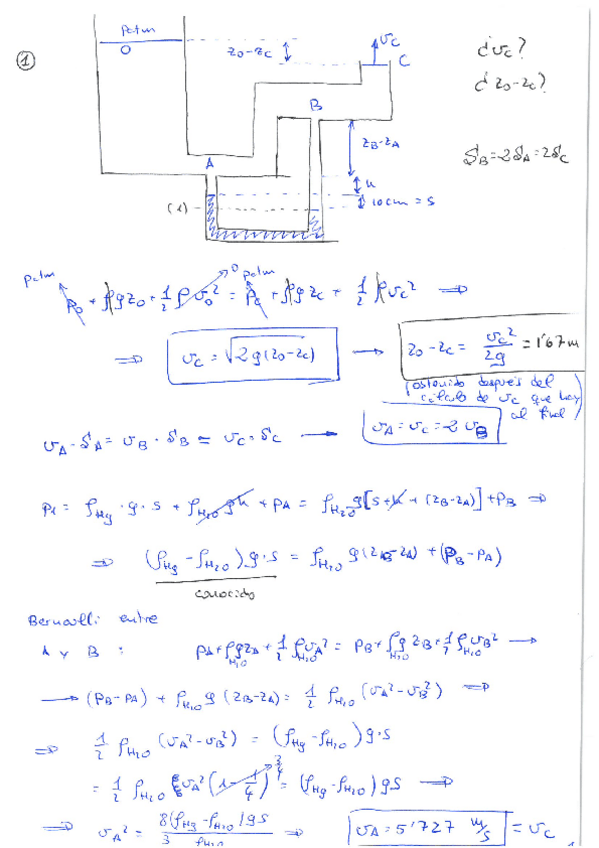 Patm
O
①
z₀-z_C
v_C
C
¿v_C?
¿z₀-z_C?
B
A
z_B-z_A
S_B=2S_A=2S_C
h
10cm = s
(1)
patm 0 patm
P₀ + ρgz₀ + 1/2 ρv₀² = P_C + ρgz_C + 1/2 ρv_C² ⇒
⇒ v_C = √2g(z₀-z_C) → z₀-z_C = v_C²/2g = 1'67m
(obtenido después del
cálculo de v_C que hay
al final)
v_A·S_A = v_B·S_B = v_C·S_C → v_A = v_C = 2v_B
P₁ = ρ_Hg·g·s + ρ_H₂O gh + P_A = ρ_H₂O g[s+h+(z_B-z_A)] + P_B ⇒
⇒ (ρ_Hg - ρ_H₂O)g·s = ρ_H₂O g(z_B-z_A) + (P_B-P_A)
conocido
Bernoulli entre
A y B : P_A + ρ_H₂O gz_A + 1/2 ρ_H₂O v_A² = P_B + ρ_H₂O gz_B + 1/2 ρ_H₂O v_B² →
→ (P_B-P_A) + ρ_H₂O g(z_B-z_A) = 1/2 ρ_H₂O (v_A²-v_B²) ⇒
⇒ 1/2 ρ_H₂O (v_A²-v_B²) = (ρ_Hg-ρ_H₂O)g·s
= 1/2 ρ_H₂O v_A²(1-1/4) 3/4 = (ρ_Hg-ρ_H₂O)gs ⇒
⇒ v_A² = 8(ρ_Hg-ρ_H₂O)gs / 3 ρ_H₂O ⇒ v_A = 5'727 m/s = v_C